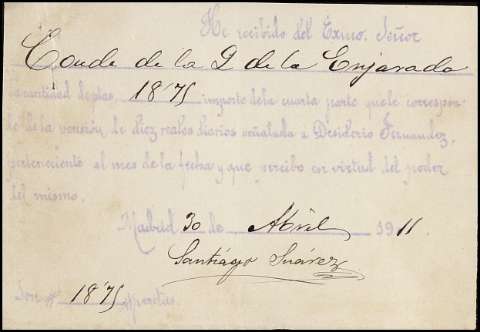 He recibido del Exmo. Señor
Conde de la Q de la Enjarada
la cantidad de ptas. 18'75 importe de la cuarta parte que le correspon-
de de la pensión de diez reales diarios señalada a Desiderio Fernandez,
perteneciente al mes de la fecha y que percibo en virtud del poder
del mismo.
Madrid 30 de Abril 1911
Santiago Suárez
Son # 18'75 # pesetas.